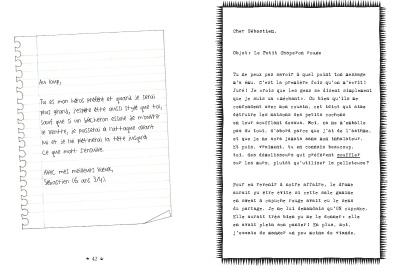 Au loup,
Tu es mon héros préféré et quand je serai
plus grand, j'espère être aussi stylé que toi,
sauf que si un bûcheron essaie de m'ouvrir
le ventre, je passerai à l'attaque avant
lui et je lui
ce que mort s'ensuive.
Avec mes meilleurs
Sébastien (6 ans 3/4).
* 42 *
Cher Sébastien,
Objet: Le Petit Chaperon rouge
Tu ne peux pas savoir à quel point ton message
m'a ému. C'est la première fois qu'on m'écrit!
Juré! Je crois que les gens se disent simplement
que je suis un «méchant». Ou bien qu'ils me
confondent avec mon cousin, cet idiot qui aime
détruire les maisons des petits cochons
en leur soufflant dessus. Moi, ça ne m'emballe
pas du tout, d'abord parce que j'ai de l'asthme,
et que je ne sors jamais sans mon inhalateur.
Et puis, vraiment, tu en connais beaucoup,
toi, des démolisseurs qui préfèrent souffler
sur les murs, plutôt qu'utiliser la pelleteuse?
Pour en revenir à notre affaire, le drame
aurait pu être évité si cette sale gamine
en sweat à capuche rouge avait eu le sens
du partage. Je ne lui demandais qu'UN cupcake.
Elle aurait très bien pu me le donner: elle
en avait plein son panier! En plus, moi,
j'essaie de manger un peu moins de viande.